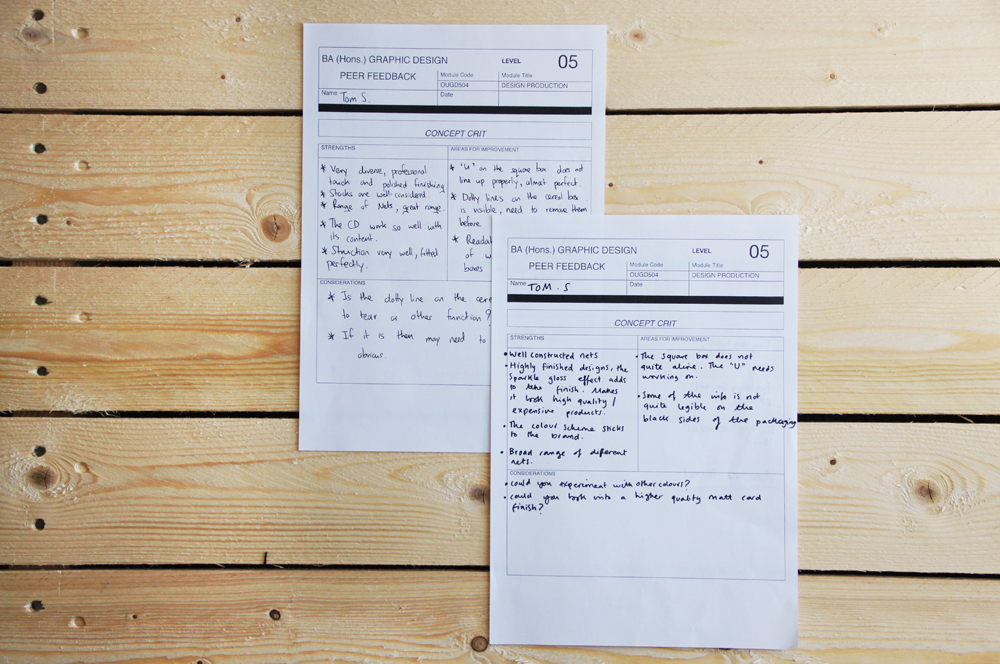 BA (Hons.) GRAPHIC DESIGN
LEVEL
05
PEER FEEDBACK
Module Code
Module Title
OUGD504
DESIGN PRODUCTION
Name
Tom S.
Date
CONCEPT CRIT
STRENGTHS
* Very diverse, professional
touch and polished finishing
* Stocks are well considered
* Range of Nets, great range.
* The CD work so well with
its content.
* Struction very well, fitted
perfectly.
AREAS FOR IMPROVEMENT
* "U" on the square box does not
line up properly, almost perfect
* Dotty lines on the cereal box
is visible, need to remove them
before
*
of
boxes
CONSIDERATIONS
* Is the dotty line on the
to tear or other function?
* If it is then may need to
obvious.
BA (Hons.) GRAPHIC DESIGN
LEVEL
05
PEER FEEDBACK
Module Code
Module Title
OUGD504
DESIGN PRODUCTION
Name
TOM. S
Date
CONCEPT CRIT
STRENGTHS
• Well constructed nets
• Highly finished designs, the
sparkle gloss effect adds
to the finish. Makes
it look high quality /
expensive products.
• The colour scheme sticks
to the brand.
• Broad range of different
nets.
AREAS FOR IMPROVEMENT
• The square box does not
quite aline. The "U" needs
working on.
• Some of the info is not
quite legible on the
black sides of the packaging
CONSIDERATIONS
• could you experiment with other colours?
• could you look into a higher quality matt card
finish?